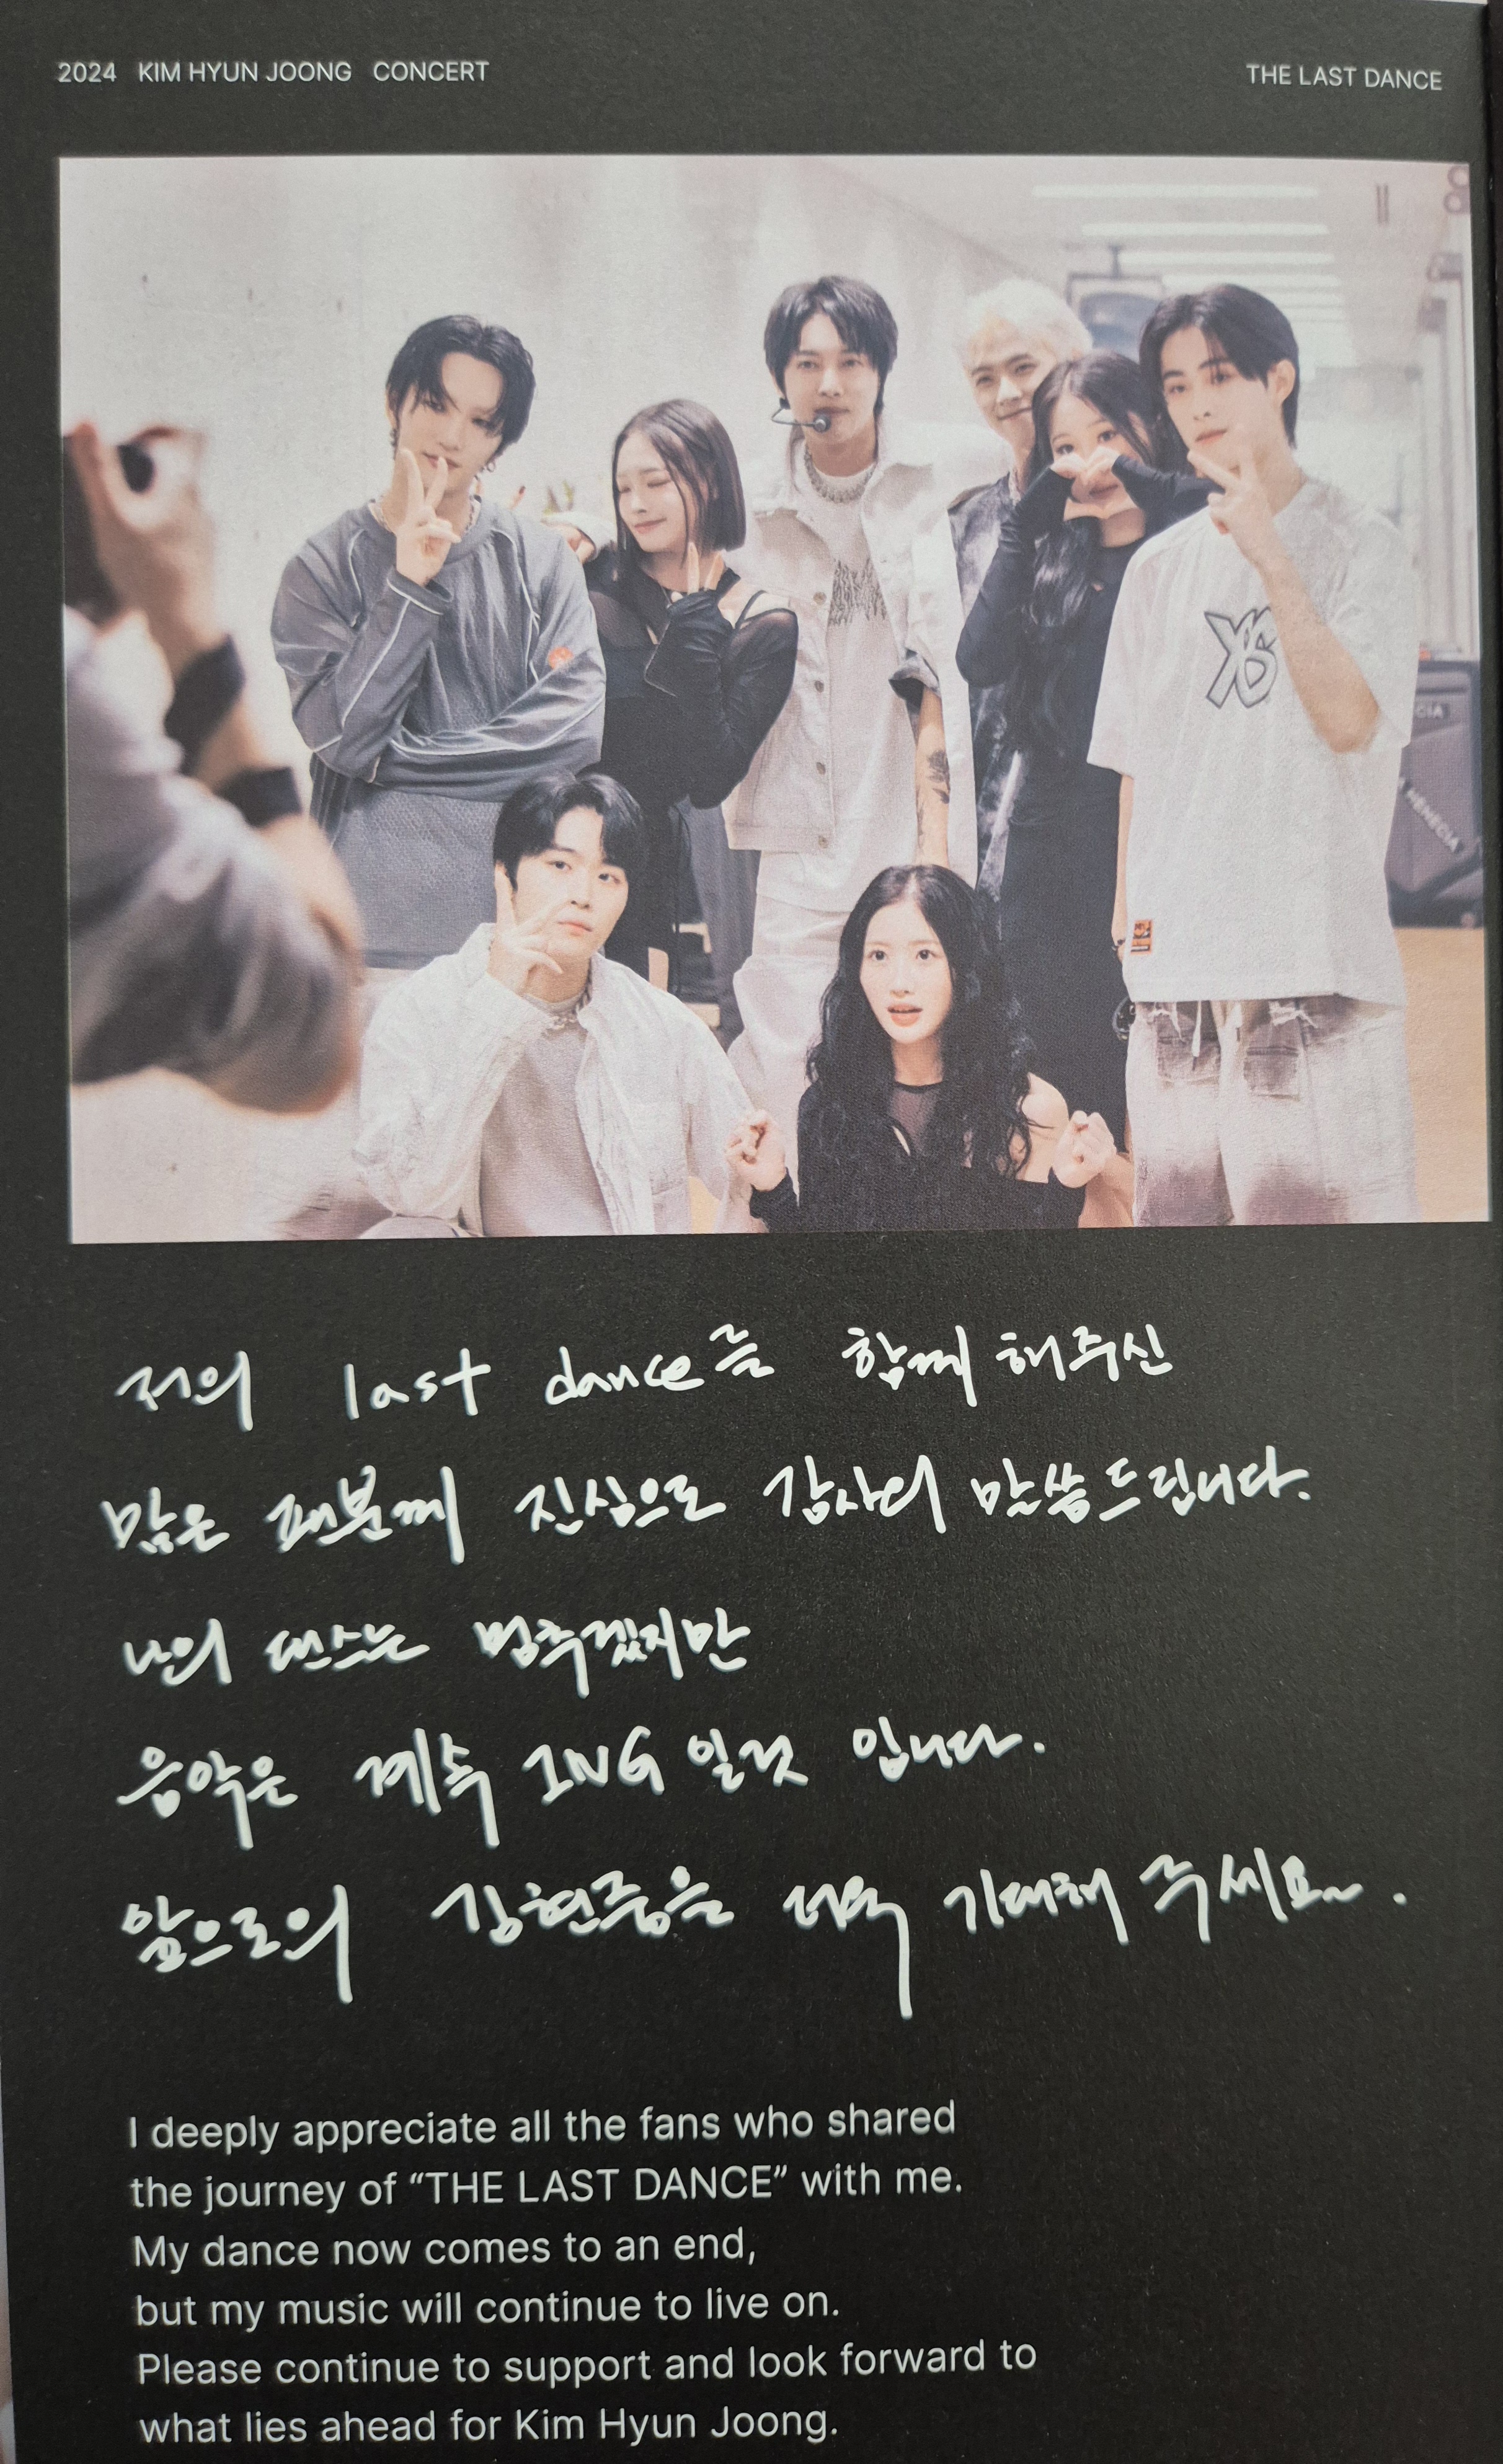 2024 KIM HYUN JOONG CONCERT
THE LAST DANCE
저의 last dance를 함께 해주신
많은 팬분께 진심으로 감사의 말씀드립니다.
나의 댄스는 멈추겠지만
음악은 계속 ING 일것 입니다.
앞으로의 김현중을 더욱 기대해 주세요~.
I deeply appreciate all the fans who shared
the journey of “THE LAST DANCE” with me.
My dance now comes to an end,
but my music will continue to live on.
Please continue to support and look forward to
what lies ahead for Kim Hyun Joong.